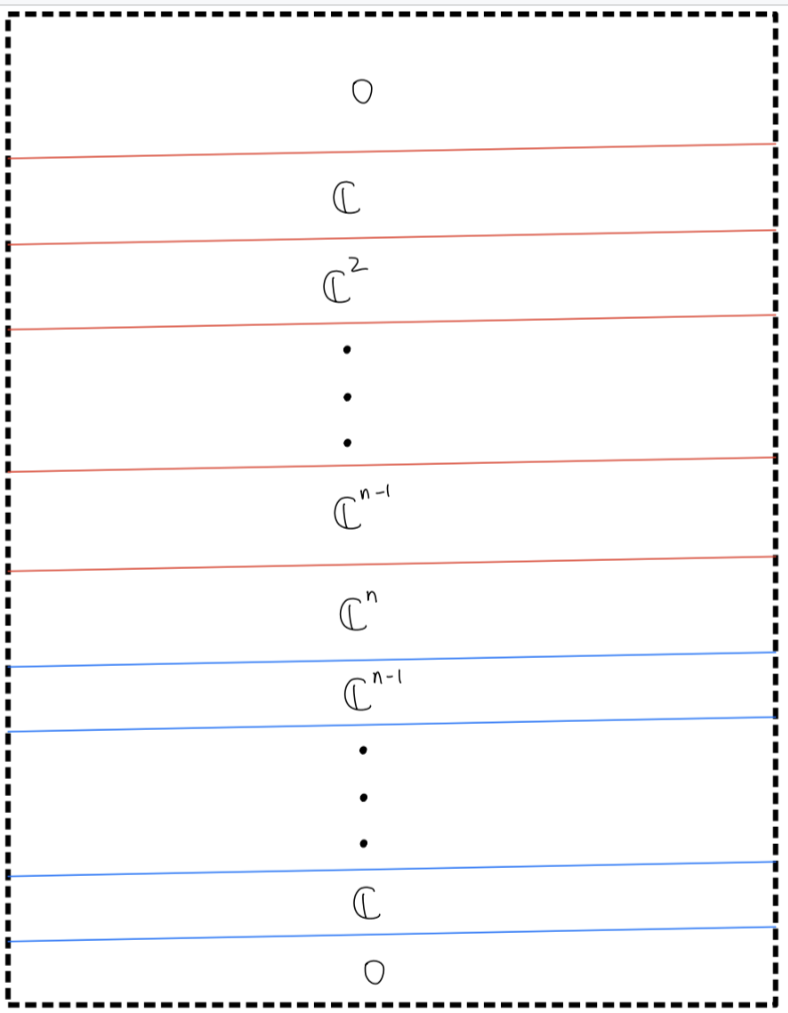 0
ℂ
ℂ²
ℂⁿ⁻¹
ℂⁿ
ℂⁿ⁻¹
ℂ
0